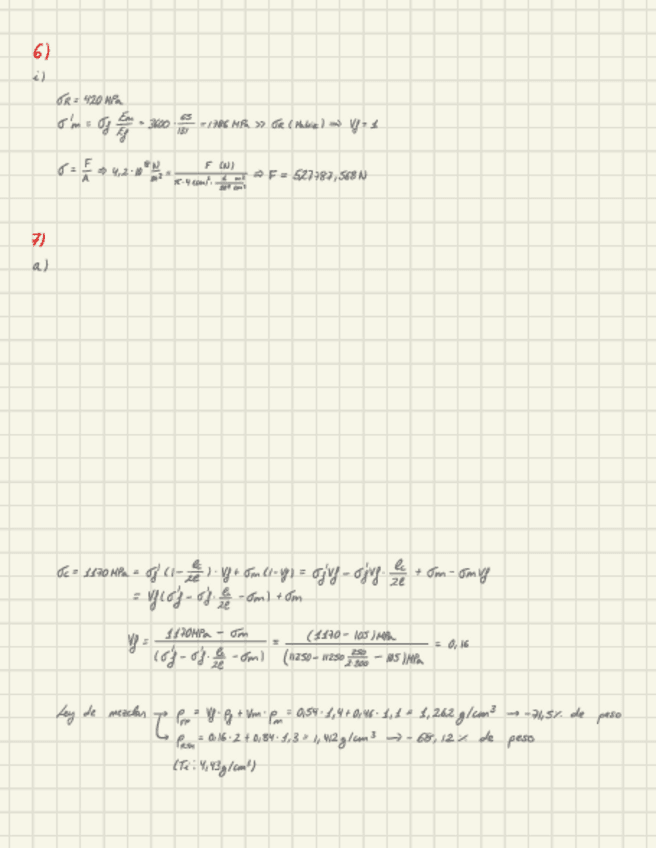 6)
i)
σR = 420 MPa
σ'm = σf Em/Ef = 3600 · 65/131 = 1786 MPa >> σR (Matriz) ⇒ Vf = 1
σ = F/A ⇒ 4,2·10⁸ N/m² = F (N) / ⇒ F = 527787,568 N
7)
a)
σc = 1170 MPa = σf' (1 - lc/2l) · Vf + σm (1-Vf) = σf'Vf - σf'Vf · lc/2l + σm - σmVf
= Vf (σf' - σf' · lc/2l - σm) + σm
Vf = 1170MPa - σm / (σf' - σf' · lc/2l - σm) = (1170 - 105)MPa / (11250 - 11250 250/2·300 - 105)MPa = 0,16
Ley de mezclas → ρ = Vf · ρf + Vm · ρm = 0,54 · 1,4 + 0,46 · 1,1 = 1,262 g/cm³ → -71,5% de peso
↳ ρ = 0,16 · 2 + 0,84 · 1,3 = 1,412 g/cm³ → - 68,12 % de peso
(Ti: 4,43 g/cm³)